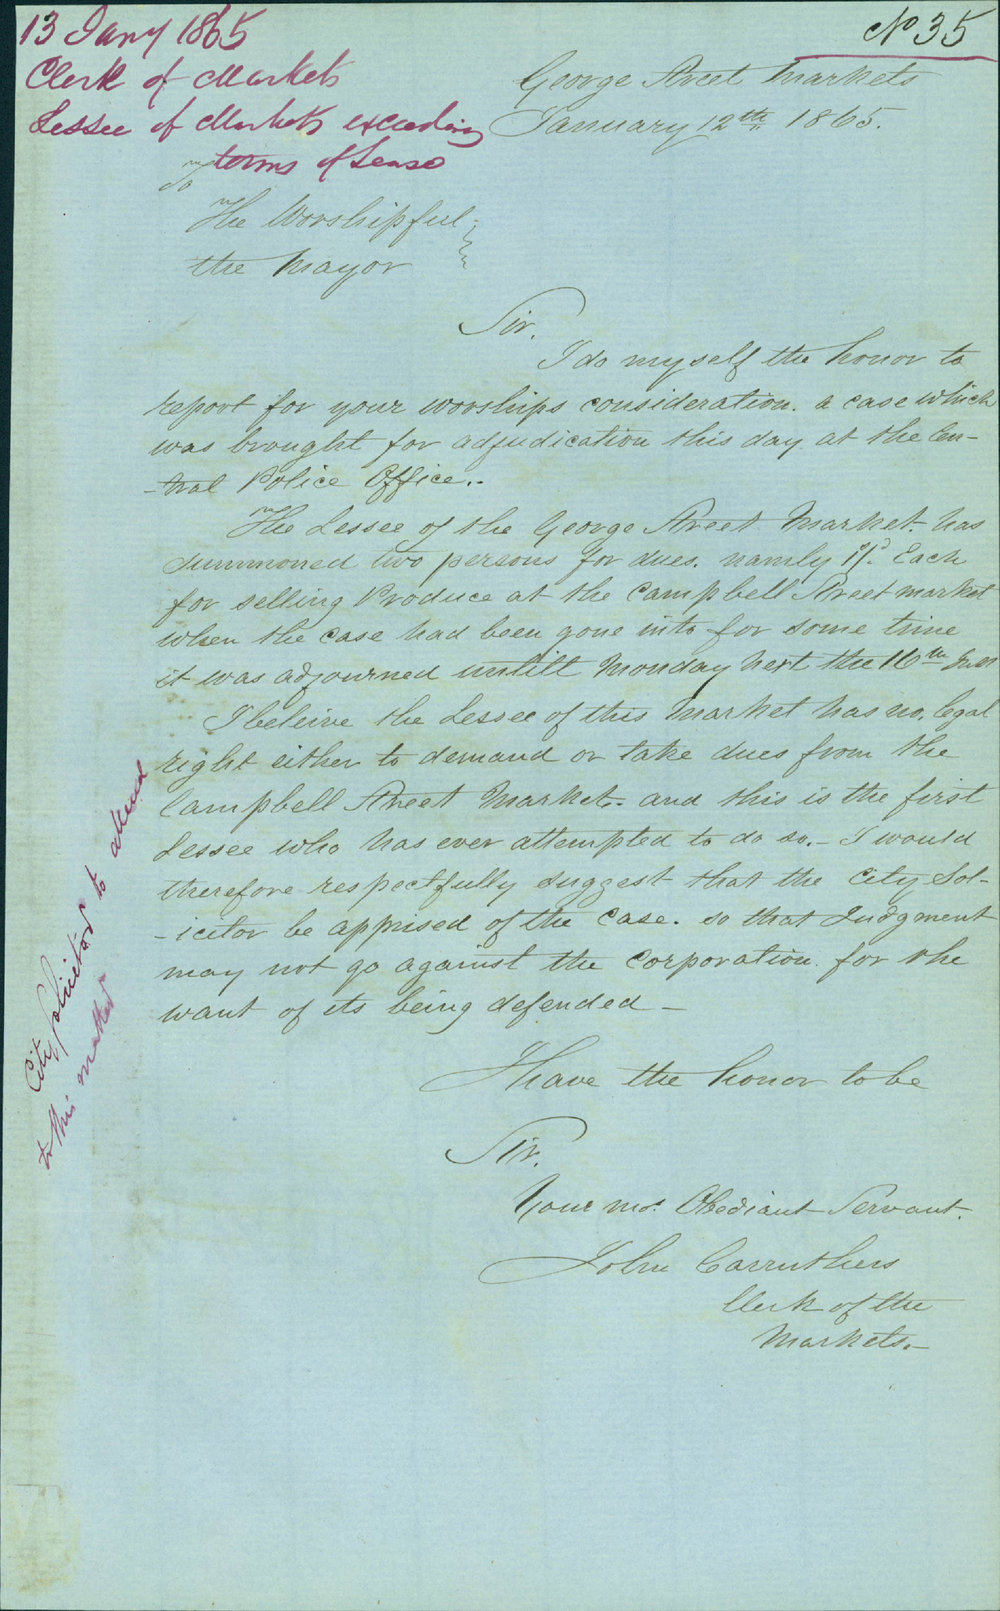 13 Jany 1865
No 35
Clerk of Markets
Lessee of Markets exceeding
terms of Lease
George Street Markets
January 12th 1865.
To
The Worshipful
the Mayor
Sir.
I do myself the honor to
report for your worships consideration. a case which
was brought for adjudication this day at the Cen-
-tral Police Office.-
The Lessee of the George Street Market has
summoned two persons for dues. namly 1/1d. Each
for selling Produce at the Campbell Street market
when the case had been gone into for some time
it was adjourned untill Monday next the 16th Inst
I beleive the Lessee of this Market has no. legal
right either to demand or take dues from the
Campbell Street Market.- and this is the first
Lessee who has ever attempted to do so.- I would
therefore respectfully suggest that the City Sol-
-icitor be apprised of the Case. so that Judgment
may not go against the Corporation. for the
want of its being defended -
I have the honor to be
Sir.
Your mo. Obediant Servant.
John Carruthers
Clerk of the
Markets.-
City Solicitor to attend
to this matter